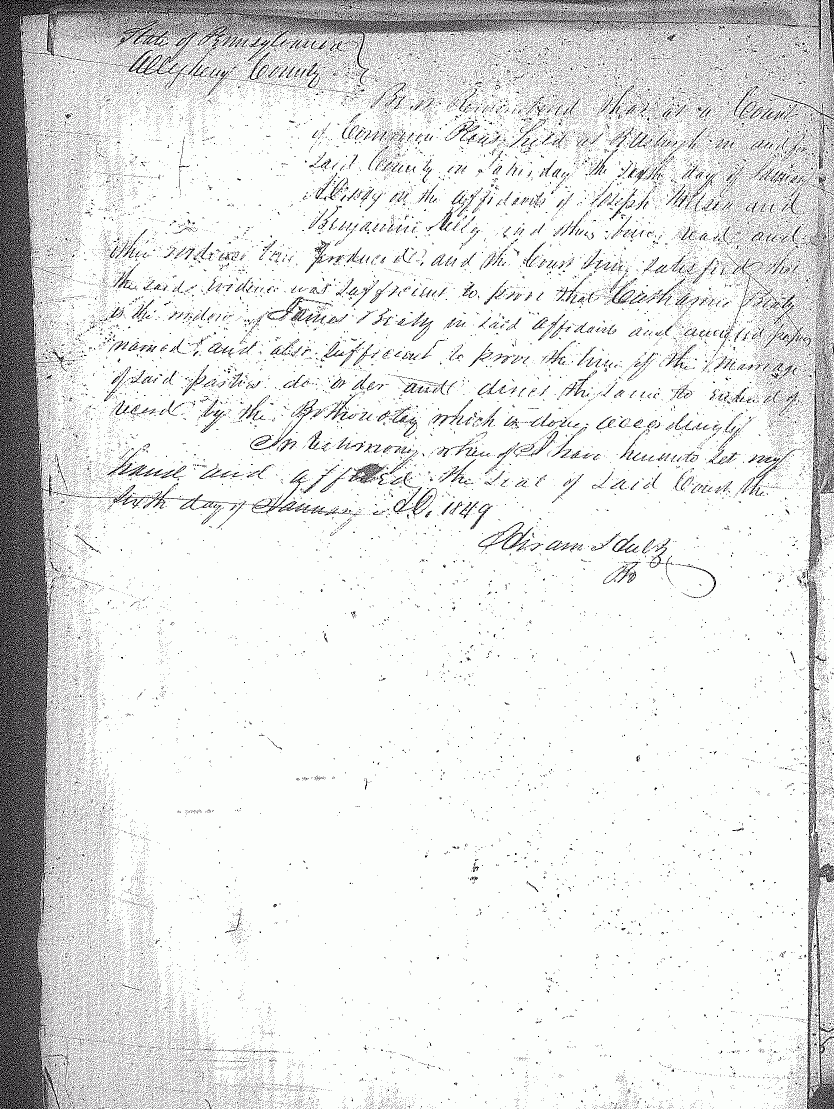 State of Pennsylvania
Allegheny County
Be it Remembered that at a Court
of Common Pleas held at Pittsburgh in and for
said County on Saturday the sixth day of January
A.D. 1849 on the affidavits of Joseph Wilson and
Benjamin Kelly and other being read and
other evidence being produced, and the Court being satisfied that
the said evidence was sufficient to prove that Catharine Beaty
is the widow of James Beaty in said affidavits and annexed papers
named, and also sufficient to prove the time of the Marriage
of said parties do order and direct the same to entered of
record by the Prothonotary which is done accordingly
In testimony whereof I have hereunto set my
hand and affixed the seal of said Court the
sixth day of January A.D. 1849
Hiram Hultz
Pro